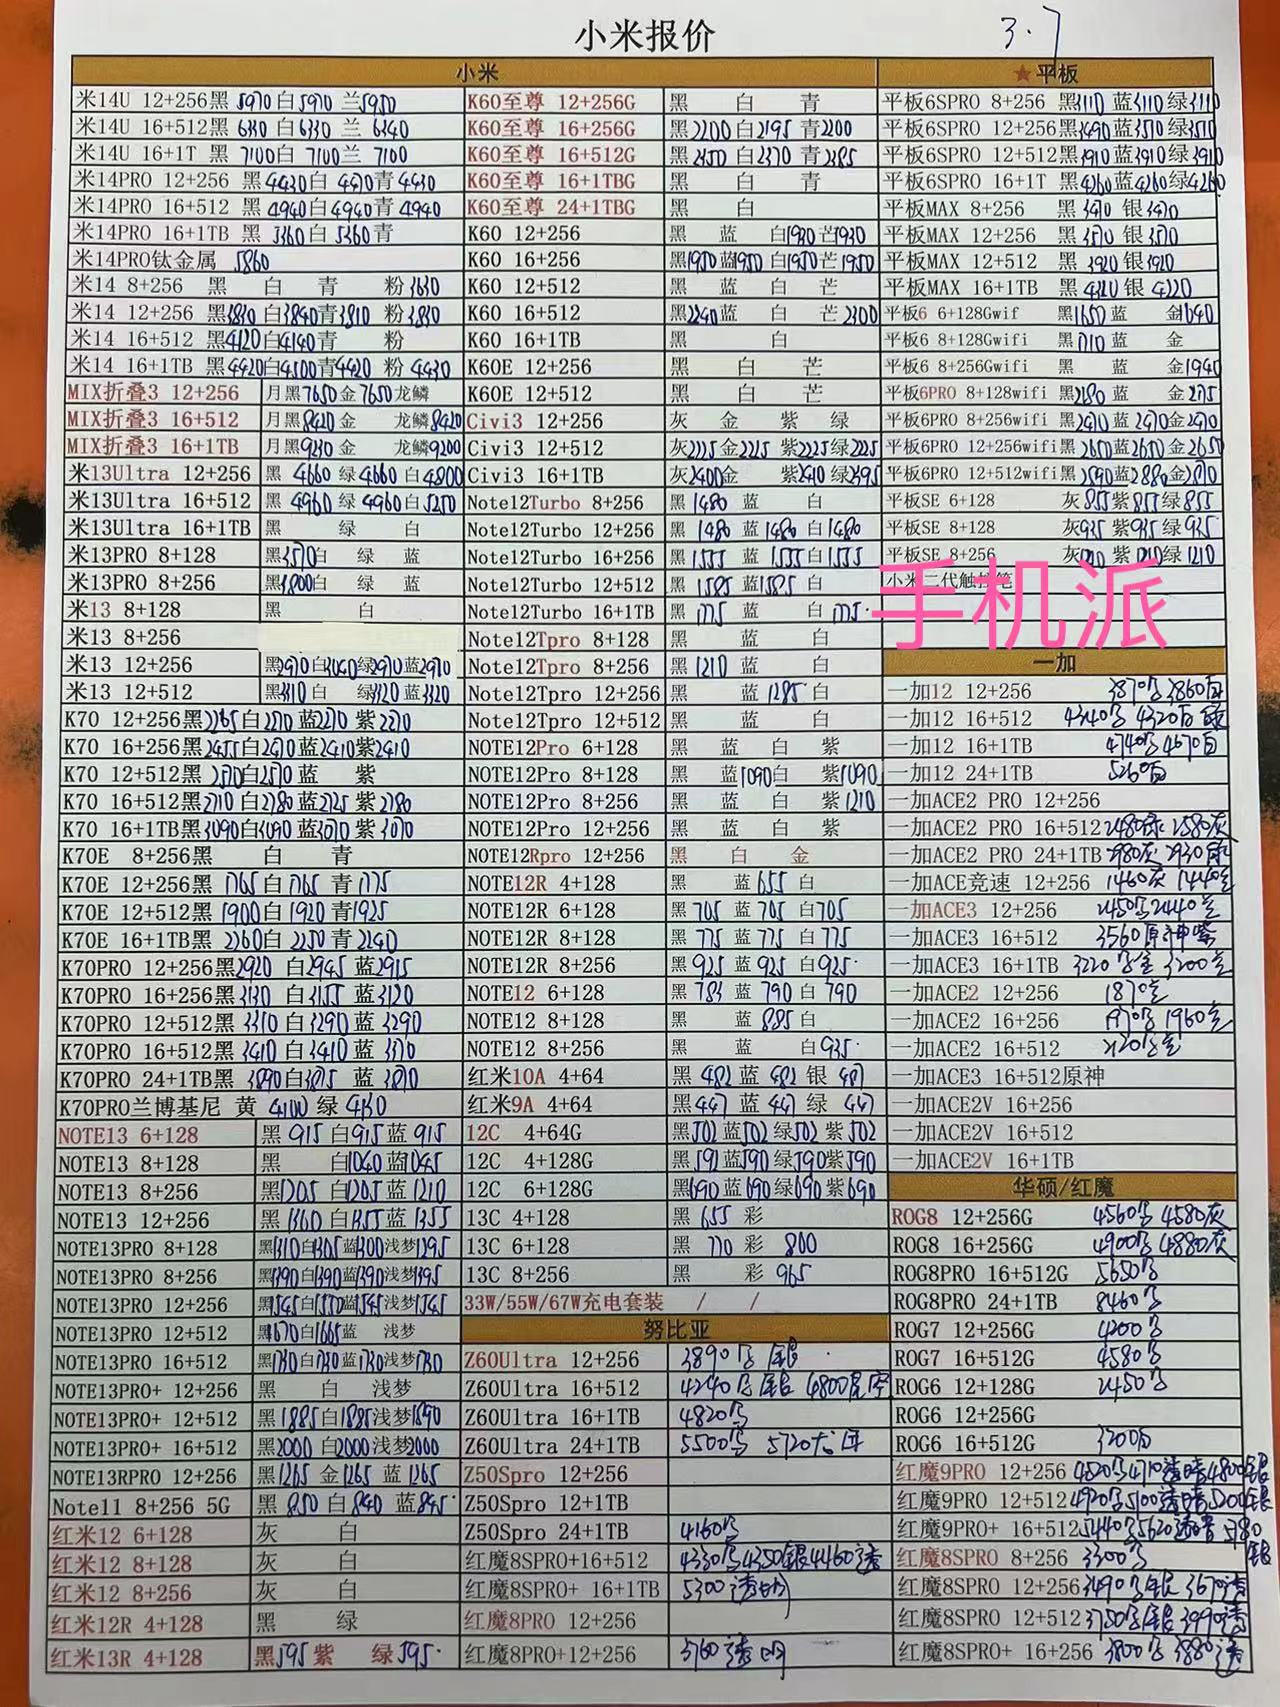 小米报价
3.7
小米
米14U 12+256黑 5970 白5970 兰5950
米14U 16+512黑 6330 白6330 兰 6340
米14U 16+1T 黑 7100白 7100兰 7100
米14PRO 12+256 黑4430白 4470青4430
米14PRO 16+512 黑 4940白4940青 4940
米14PRO 16+1TB 黑 5360白 5360青
米14PRO钛金属 5860
米14 8+256 黑 白 青 粉3630
米14 12+256 黑3830 白3840青3810 粉3830
米14 16+512 黑4120白4140青 粉
米14 16+1TB 黑4420白4500青4420 粉 4430
MIX折叠3 12+256 月黑7650金 7650龙鳞
MIX折叠3 16+512 月黑8420金 龙鳞8420
MIX折叠3 16+1TB 月黑9230金 龙鳞9200
米13Ultra 12+256 黑 4660 绿4660 白4800
米13Ultra 16+512 黑 4960 绿 4960白5250
米13Ultra 16+1TB 黑 绿 白
米13PRO 8+128 黑3570白 绿 蓝
米13PRO 8+256 黑3800白 绿 蓝
米13 8+128 黑 白
米13 8+256
米13 12+256 黑2970白3040绿2970蓝2970
米13 12+512 黑3310白 绿3320蓝3320
K70 12+256黑2265白2270蓝2270 紫2270
K70 16+256黑2455白2470蓝2410紫2410
K70 12+512黑 2570白2570蓝 紫
K70 16+512黑2710 白2780蓝2725 紫2780
K70 16+1TB黑3090白3090 蓝3070 紫3070
K70E 8+256黑 白 青
K70E 12+256黑 1765 白1765 青1775
K70E 12+512黑 1900白1920 青1925
K70E 16+1TB黑 2260白2250 青2240
K70PRO 12+256黑2920 白2945 蓝2915
K70PRO 16+256黑3130 白3155 蓝3120
K70PRO 12+512黑 3310白3290蓝 3290
K70PRO 16+512黑3410 白3410 蓝 3370
K70PRO 24+1TB黑 3890白3875 蓝 3870
K70PRO兰博基尼 黄 4100 绿 4130
NOTE13 6+128 黑 915 白915蓝 915
NOTE13 8+128 黑 白1040 蓝1045
NOTE13 8+256 黑1205 白1205蓝 1210
NOTE13 12+256 黑 1360 白1355 蓝 1355
NOTE13PRO 8+128 黑1310白1305蓝1300浅梦1295
NOTE13PRO 8+256 黑1390白1390蓝1390浅梦1395
NOTE13PRO 12+256 黑1545白1550蓝1545浅梦1545
NOTE13PRO 12+512 黑1670白1665蓝 浅梦
NOTE13PRO 16+512 黑1730白1730蓝1730浅梦1730
NOTE13PRO+ 12+256 黑 白 浅梦
NOTE13PRO+ 12+512 黑1885白1885浅梦1890
NOTE13PRO+ 16+512 黑2000 白2000浅梦2000
NOTE13RPRO 12+256 黑1265 金1265 蓝 1265
Note11 8+256 5G 黑 850 白840 蓝845
红米12 6+128 灰 白
红米12 8+128 灰 白
红米12 8+256 灰 白
红米12R 4+128 黑 绿
红米13R 4+128 黑595紫 绿595
K60至尊 12+256G 黑 白 青
K60至尊 16+256G 黑2200白2195青2200
K60至尊 16+512G 黑2350白2370 青2385
K60至尊 16+1TBG 黑 白 青
K60至尊 24+1TBG 黑 白
K60 12+256 黑 蓝 白1930芒1930
K60 16+256 黑1950蓝1950 白1950芒1950
K60 12+512 黑 蓝 白 芒
K60 16+512 黑2240蓝 白 芒2300
K60 16+1TB 黑 白
K60E 12+256 黑 白 芒
K60E 12+512 黑 白 芒
Civi3 12+256 灰 金 紫 绿
Civi3 12+512 灰2225金2215 紫2225绿2225
Civi3 16+1TB 灰2400金 紫2410绿2395
Note12Turbo 8+256 黑1480 蓝 白
Note12Turbo 12+256 黑 1480 蓝1480 白1480
Note12Turbo 16+256 黑1555 蓝 1555白1555
Note12Turbo 12+512 黑 1585 蓝1585 白
Note12Turbo 16+1TB 黑 1775 蓝 白1775
Note12Tpro 8+128 黑 蓝 白
Note12Tpro 8+256 黑1210 蓝 白
Note12Tpro 12+256 黑 蓝1285 白
Note12Tpro 12+512 黑 蓝 白
NOTE12Pro 6+128 黑 蓝 白 紫
NOTE12Pro 8+128 黑 蓝1090白 紫1090
NOTE12Pro 8+256 黑 蓝 白 紫1210
NOTE12Pro 12+256 黑 蓝 白 紫
NOTE12Rpro 12+256 黑 白 金
NOTE12R 4+128 黑 蓝655 白
NOTE12R 6+128 黑705 蓝 705 白705
NOTE12R 8+128 黑775 蓝775 白775
NOTE12R 8+256 黑925 蓝 925 白925
NOTE12 6+128 黑 783 蓝 790 白 790
NOTE12 8+128 黑 蓝885白
NOTE12 8+256 黑 蓝 白935
红米10A 4+64 黑 482 蓝 482 银 487
红米9A 4+64 黑447 蓝 447 绿 447
12C 4+64G 黑502蓝502绿502 紫502
12C 4+128G 黑592蓝590绿590紫590
12C 6+128G 黑690蓝690绿690紫690
13C 4+128 黑 655 彩
13C 6+128 黑 770 彩 800
13C 8+256 黑 彩 965
33W/55W/67W充电套装 / /
努比亚
Z60Ultra 12+256 3890黑 银
Z60Ultra 16+512 4240黑银 4800星空
Z60Ultra 16+1TB 4820黑
Z60Ultra 24+1TB 5500黑 5720
Z50Spro 12+256
Z50Spro 12+1TB
Z50Spro 24+1TB 4160黑
红魔8SPRO+16+512 4330黑4350银4460透
红魔8SPRO+ 16+1TB 5300透明
红魔8PRO 12+256
红魔8PRO+12+256 3760透明
★平板
平板6SPRO 8+256 黑3110 蓝3110绿3110
平板6SPRO 12+256黑3490蓝3510绿3510
平板6SPRO 12+512黑3910蓝3910绿3910
平板6SPRO 16+1T 黑4260蓝4260绿4260
平板MAX 8+256 黑 3470 银3470
平板MAX 12+256 黑 3570 银3570
平板MAX 12+512 黑 3920 银3920
平板MAX 16+1TB 黑 4220 银 4220
平板6 6+128Gwif 黑1650蓝 金1640
平板6 8+128Gwifi 黑1710蓝 金
平板6 8+256Gwifi 黑 蓝 金1940
平板6PRO 8+128wifi 黑2180蓝 金2175
平板6PRO 8+256wifi 黑2470 蓝2470金2470
平板6PRO 12+256wifi黑2650蓝2650金2650
平板6PRO 12+512wifi黑2890蓝2880金2870
平板SE 6+128 灰855紫855绿855
平板SE 8+128 灰935 紫935绿935
平板SE 8+256 灰1210 紫1210绿1210
小米二代触控笔
手机派
一加
一加12 12+256 3870黑 3860白
一加12 16+512 4340黑 4320白
一加12 16+1TB 4740黑 4670白
一加12 24+1TB 5260白
一加ACE2 PRO 12+256
一加ACE2 PRO 16+512 2480绿 2580灰
一加ACE2 PRO 24+1TB 2980灰 2930
一加ACE竞速 12+256 1460灰 1440
一加ACE3 12+256 2450黑2440金
一加ACE3 16+512 3560原神紫
一加ACE3 16+1TB 3220黑金 3200金
一加ACE2 12+256 1870
一加ACE2 16+256 1970黑 1960
一加ACE2 16+512
一加ACE3 16+512原神
一加ACE2V 16+256
一加ACE2V 16+512
一加ACE2V 16+1TB
华硕/红魔
ROG8 12+256G 4560黑 4580灰
ROG8 16+256G 4900黑 4880灰
ROG8PRO 16+512G 5650黑
ROG8PRO 24+1TB 8460黑
ROG7 12+256G 4200黑
ROG7 16+512G 4580黑
ROG6 12+128G 2450黑
ROG6 12+256G
ROG6 16+512G 3200白
红魔9PRO 12+256 4520黑4710透暗4800银
红魔9PRO 12+512 4920黑5100透暗5200银
红魔9PRO+ 16+512 5440黑5620透暗 5780银
红魔8SPRO 8+256 3300黑
红魔8SPRO 12+256 3490黑银 3670透
红魔8SPRO 12+512 3750黑银 3990透
红魔8SPRO+ 16+256 3800黑 3880透